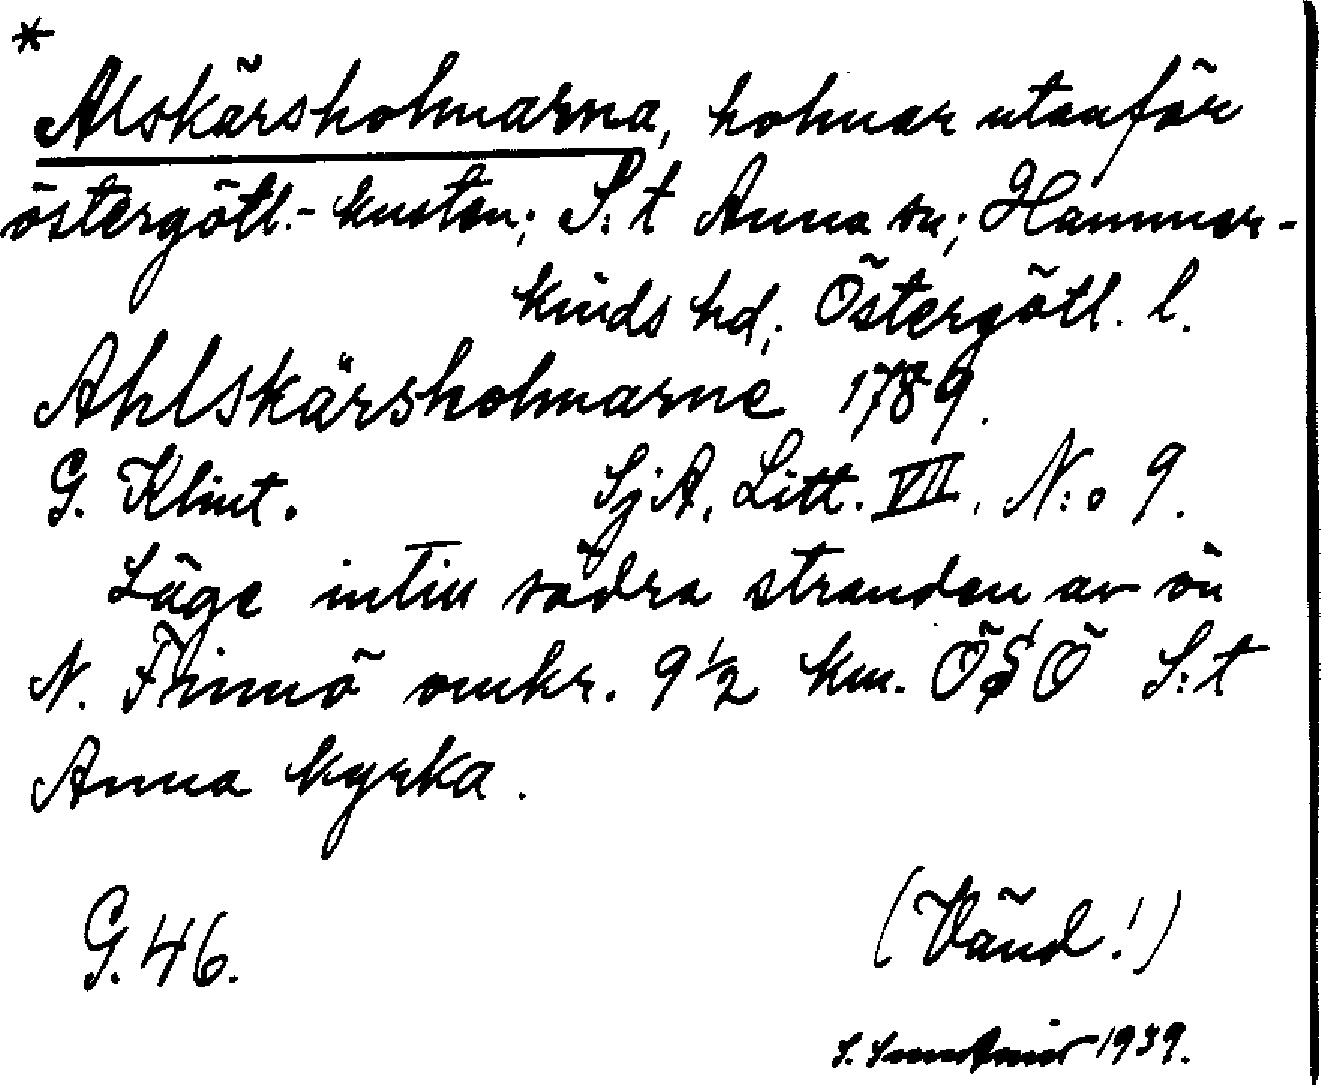 *
Alskärsholmarna, holmar utanför
östergötl.-kusten; S:t Anna sn; Hammar-
kinds hd; Östergötl. l.
Ahlskärsholmarne 1789.
G. Klint. SjA, Litt. VII. N:o 9.
Läge intill södra stranden av ön
N. Finnö omkr. 9 1/2 km. ÖSÖ S:t
Anna kyrka.
G. 46. (Vänd!)
S. 1939.